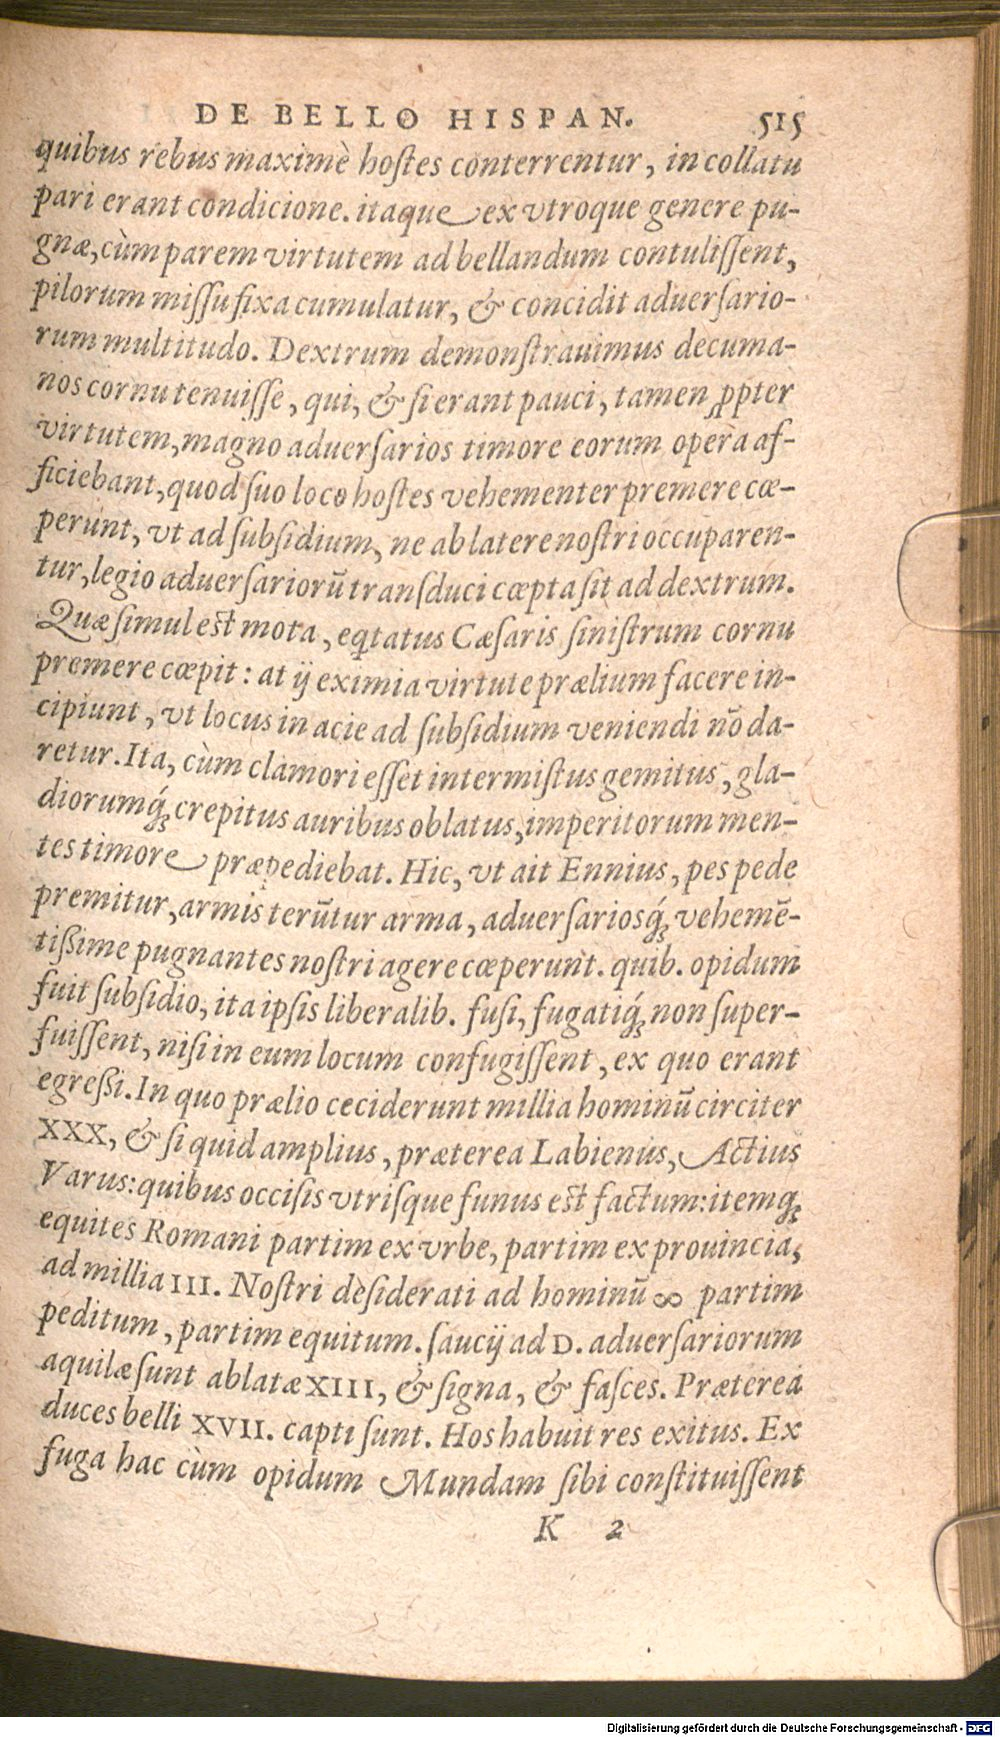 DE BELLO HISPAN. 515
quibus rebus maximè hoſtes conterrentur, in collatu
pari erant condicione. itaque ex vtroque genere pu-
gnæ, cùm parem virtutem ad bellandum contuliſſent,
pilorum miſſu fixa cumulatur, & concidit aduerſario-
rum multitudo. Dextrum demonſtrauimus decuma-
nos cornu tenuiſſe, qui, & ſi erant pauci, tamen ꝓpter
virtutem, magno aduerſarios timore eorum opera af-
ficiebant, quod ſuo loco hoſtes vehementer premere cœ-
perunt, vt ad ſubſidium, ne ab latere noſtri occuparen-
tur, legio aduerſariorū tranſduci cœpta ſit ad dextrum.
Quæ ſimul eſt mota, eq̃tatus Cæſaris ſiniſtrum cornu
premere cœpit: at ij eximia virtute prælium facere in-
cipiunt, vt locus in acie ad ſubſidium veniendi nō da-
retur. Ita, cùm clamori eſſet intermiſtus gemitus, gla-
diorumq́; crepitus auribus oblatus, imperitorum men-
tes timore præpediebat. Hic, vt ait Ennius, pes pede
premitur, armis terūtur arma, aduerſariosq́; vehemē-
tißime pugnantes noſtri agere cœperunt. quib. opidum
fuit ſubſidio, ita ipſis liberalib. fuſi, fugatiq́; non ſuper-
fuiſſent, niſi in eum locum confugiſſent, ex quo erant
egreßi. In quo prælio ceciderunt millia hominū circiter
XXX, & ſi quid amplius, præterea Labienus, Actius
Varus: quibus occiſis vtriſque funus eſt factum: itemq;
equites Romani partim ex vrbe, partim ex prouincia,
ad millia III. Noſtri deſiderati ad hominū ∞ partim
peditum, partim equitum. ſaucij ad D. aduerſariorum
aquilæ ſunt ablatæ XIII, & ſigna, & faſces. Præterea
duces belli XVII. capti ſunt. Hos habuit res exitus. Ex
fuga hac cùm opidum Mundam ſibi conſtituiſſent
K 2
Digitalisierung gefördert durch die Deutsche Forschungsgemeinschaft - DFG